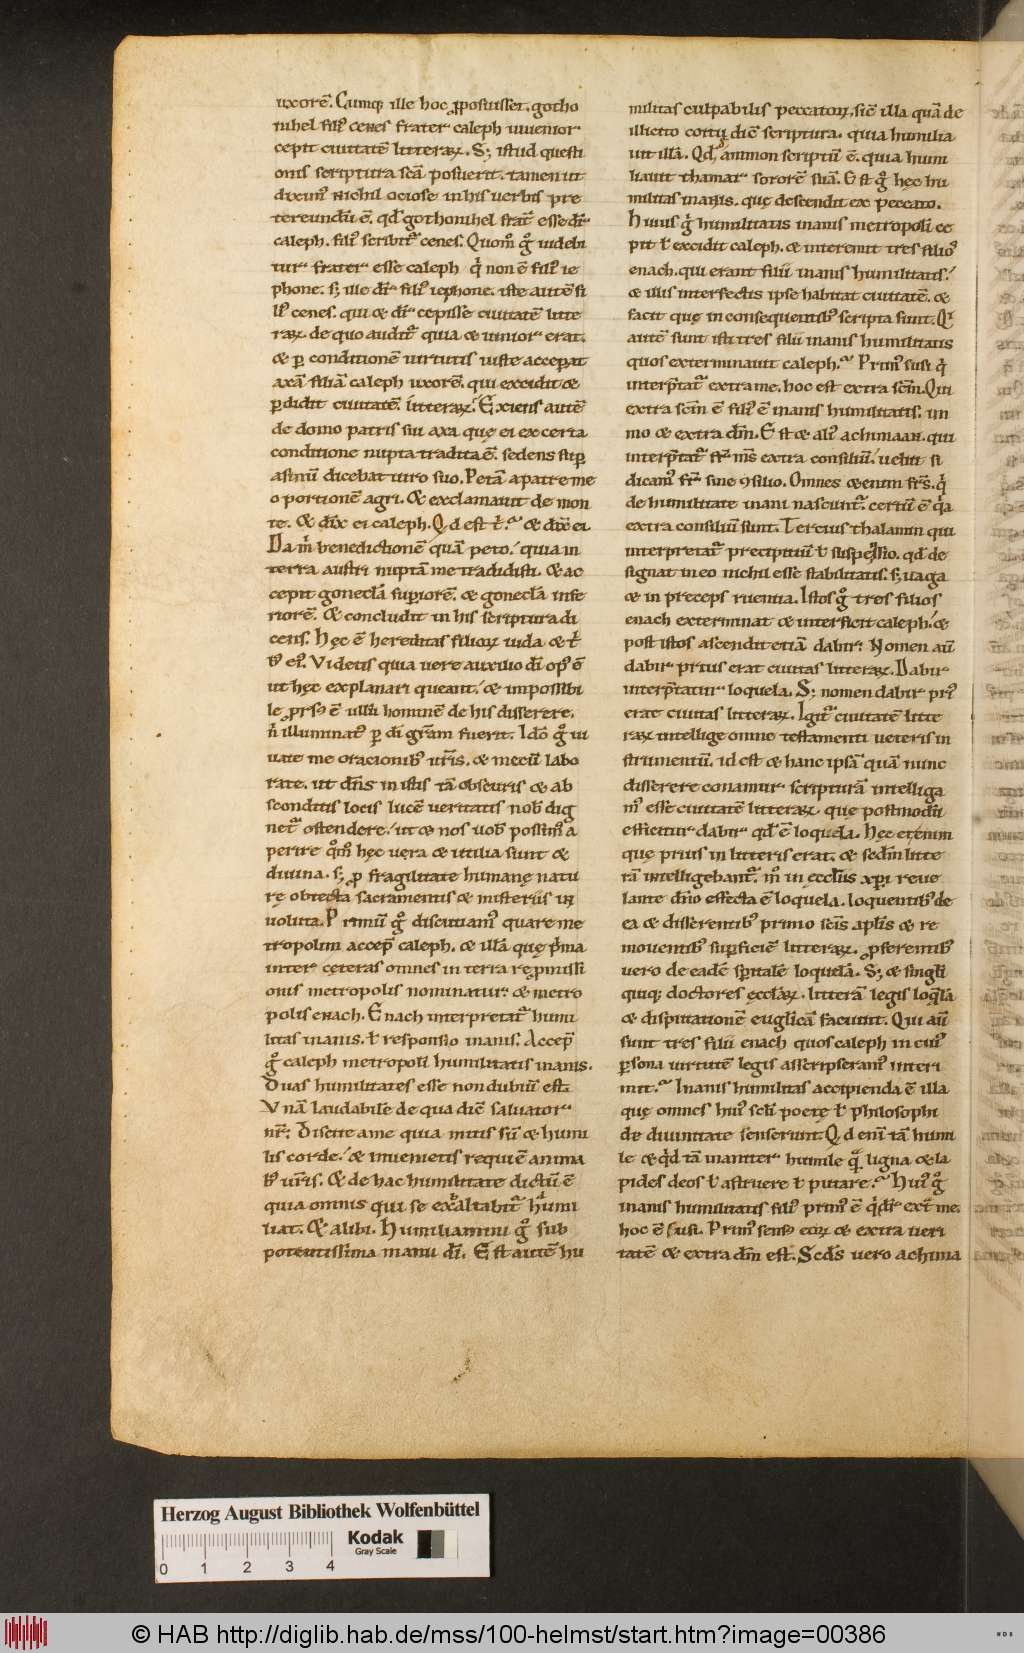 uxorē. Cumq; ille hoc ꝓposuisset. gotho
nihel filiꝰ cenes frater caleph iuuenior
cepit ciuitatē litterarꝝ. S; istud questi
onis scriptura scā posuerit. tamen ut
diximꝰ nichil ociose in his uerbis pre
tereundū ē. qđ gothonihel frat̄ esse dr̄
caleph. filiꝰ scribit᷑ cenes. Quom̄ gͦ uidebi
tur frater esse caleph qͥ non ē filiꝰ ie
phone. s; ille dr̄ filiꝰ iephone. iste autē fi
liꝰ cenes. qui & dr̄ cepisse ciuitatē litte
rarꝝ. de quo audit᷑ quia & iunior erat.
& ꝑ conditionē uirtutis iuste acceperat
axā filiā caleph uxorē. qui excidit &
ꝑdidit ciuitatē litterarꝝ. Exiens autē
de domo patris sui axa quę ei ex certa
conditione nupta tradita ē. sedens suꝑ
asinū dicebat uiro suo. Petā a patre me
o portionē agri. & exclamauit de mon
te. & dix̄ ei caleph. Qd est t᷑? & dix̄ ei
Da m̄ benedictionē quā peto. quia in
terra austri nuptā me tradidisti. & ac
cepit goneclā suꝑiorē. & goneclā infe
riorē. & concludit in his scriptura di
cens. Hęc ē hereditas filiorꝝ iuda & t̄
bꝰ eiꝰ. Videtis quia uere auxilio dī opꝰ ē
ut hęc explanari queant. & impossibi
le ꝓrsꝰ ē ullū hominē de his disserere.
n̄ illuminatꝰ ꝑ dī gr̄am fuerit. Ideo gͦ iu
uate me orationibꝰ ur̄is. & mecū labo
rate. ut dn̄s in istis tā obscuris & ab
sconditis locis lucē ueritatis nob̄ dig
net᷑ ostendere. ut & nos uob̄ possimꝰ a
perire qm̄ hęc uera & utilia sunt &
diuina. s; ꝓ fragilitate humanę natu
rę obtecta sacramentis & misteriis in
uoluta. Primū gͦ discutiamꝰ quare me
tropolim accep̄ caleph. & illā quę pͥma
inter cęteras omnes in terra reꝓmissi
onis metropolis nominatur. & metro
polis enach. Enach interpretat᷑ humi
litas inanis. ł responsio inanis. Accep̄
gͦ caleph metropoli humilitatis inanis.
Duas humilitates esse non dubiū est.
Vnā laudabilē de qua dic̄ saluator
nr̄. Discite a me quia mitis sū & humi
lis corde. & inuenietis requiē anima
bꝰ ur̄is. & de hac humilitate dictū ē
quia omnis qui se exaltabit᷑ humi
liat. & alibi. Humiliamini gͦ sub
potentissima manu dī. Est autē hu
militas culpabilis peccatorꝝ. sic̄ illa quā de
illicito coitu dic̄ scriptura. quia humilia
uit illā. Qd ammon scriptū ē. quia humi
liauit thamar sororē suā. Est gͦ hęc hu
militas inanis. quę descendit ex peccato.
Huius gͥ humilitatis inanis metropolī ce
pit ł excidit caleph. & interemit tres filioꝰ
enach. qui erant filii inanis humilitatis.
& illis interfectis ipse habitat ciuitatē. &
facit quę in consequentibꝰ scripta sunt. Qͥ
autē sunt isti tres filii inanis humilitatis
quos exterminauit caleph? Primꝰ susi qͥ
interp̄tat᷑ extra me. hoc est extra scm̄. Qui
extra scm̄ ē filiꝰ ē inanis humilitatis. im
mo & extra dm̄. Est & aliꝰ achimaan. qui
interp̄tat᷑ fr̄ ms̄ extra consiliū. uelut si
dicamꝰ fr̄ sine ꝯsilio. Omnes & enim fr̄s. qͥ
de humilitate inani nascunt᷑. certū ē qͥa
extra consiliū sunt. Tercius thalamin qui
interpretat᷑ precipitiū ł suspensio. qđ de
signat in eo nichil esse stabilitatis. s; uaga
& in preceps ruentia. Istos gͦ tres filios
enach exterminat & interficit caleph. &
post istos ascendit etiā dabir. Nomen aū
dabir prius erat ciuitas litterarꝝ. Dabir
interp̄tatur loquela. S; nomen dabir priꝰ
erat ciuitas litterarꝝ. Igit᷑ ciuitatē litte
rarꝝ intellige omne testamenti ueteris in
strumentū. id est & hanc ipsā quā nunc
disserere conamur scripturā intelliga
mꝰ esse ciuitatē litterarꝝ. quę postmodū
efficitur dabir qđ ē loquela. Hęc etenim
quę prius in litteris erat. & sedm̄ litte
rā intelligebant᷑. m̊ in ęccl̄iis xp̄i reue
lante dn̄o effecta ē loquela. loquentibꝰ de
ea & disserentibꝰ primo scīs apl̄is & re
mouentibꝰ suꝑficiē litterarꝝ. ꝓferentibꝰ
uero de eadē spitalē loquelā. S; & singl̄i
quiq; doctores ęccl̄arꝝ. litterā legis loqlā
& disputationē euglicā faciunt. Qui aū
sunt tres filii enach quos caleph in cuiꝰ
ꝑsona uirtutē legis asscripseramꝰ interi
mit? Inanis humilitas accipienda ē illa
quę omnes huiꝰ scl̄i poetę ł philosophi
de diuinitate senserunt. Qd eni tā humi
le & qd tā inaniter humile qͣ ligna & la
pides deos ł astruere ł putare? Huiꝰ gͦ
inanis humilitatis filiꝰ primꝰ ē qͥ dr̄ ext̄ me.
hoc ē susi. Primꝰ sensꝰ eorꝝ & extra ueri
tatē & extra dm̄ est. Scds̄ uero achima
Herzog August Bibliothek Wolfenbüttel
Kodak
Gray Scale
0 1 2 3 4
© HAB http://diglib.hab.de/mss/100-helmst/start.htm?image=00386